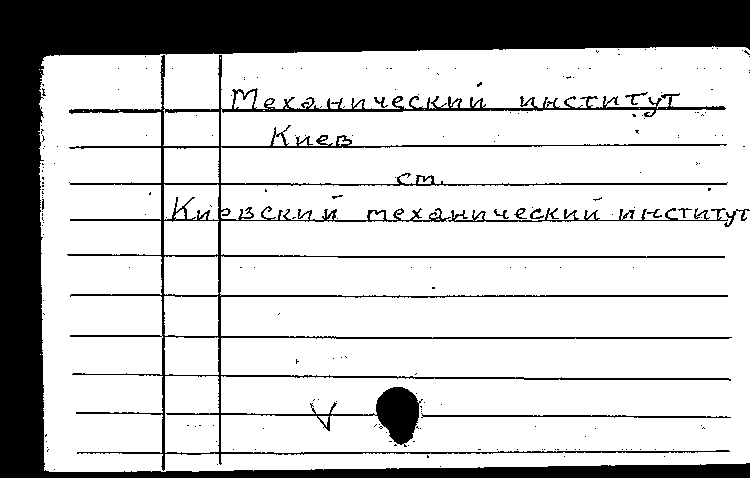 Механический институт
Киев
ст.
Киевский механический институт
V